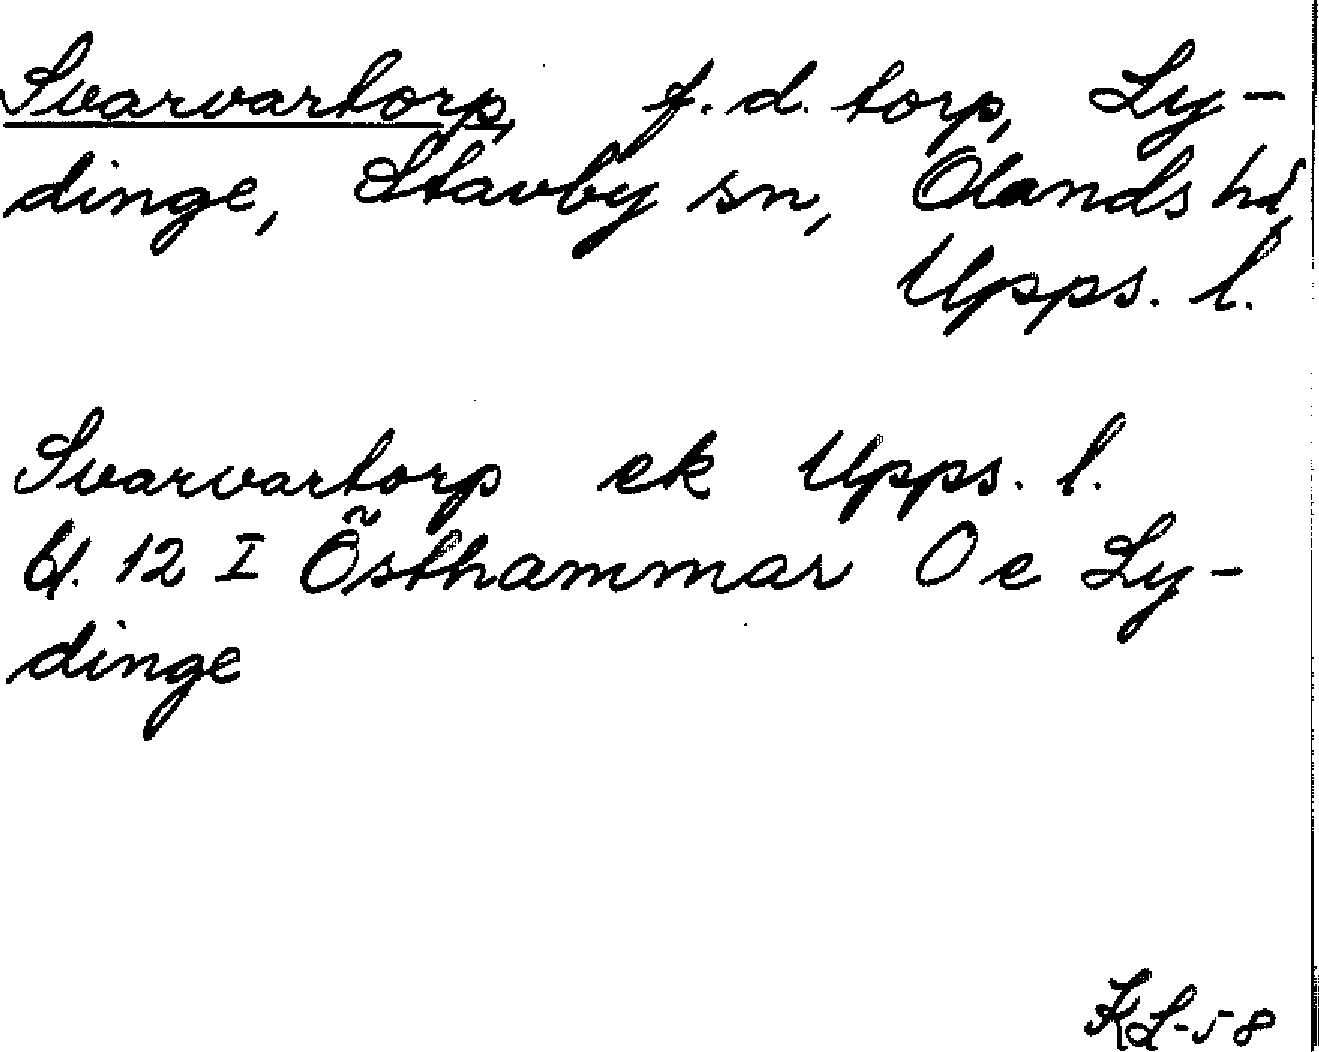 Svarvartorp, f.d. torp, Ly-
dinge, Stavby sn, Olands hd,
Upps. l.
Svarvartorp ek Upps. l.
Bl. 12 I Östhammar O e Ly-
dinge
KL-58